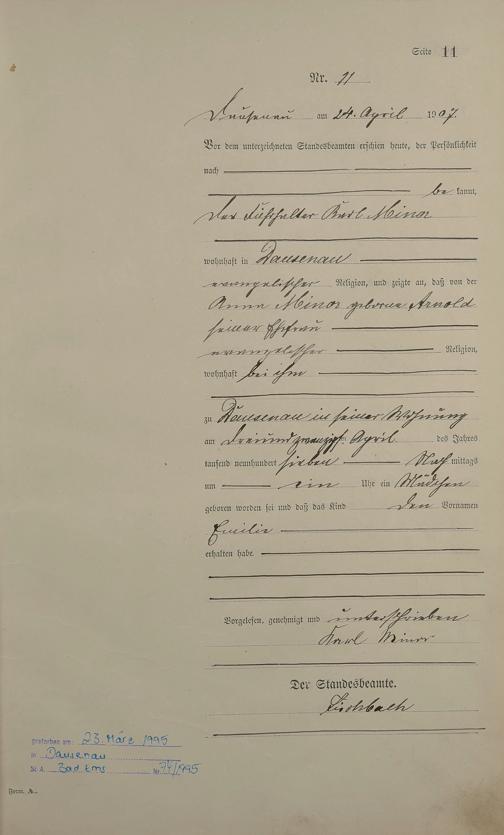 Seite 11
Nr. 11
Dausenau am 24. April 1907.
Vor dem unterzeichneten Standesbeamten erschien heute, der Persönlichkeit
nach
be kannt,
der Karl Minor
wohnhaft in Dausenau
evangelischer Religion, und zeigte an, daß von der
Anna Minor geborene Arnold
seiner Ehefrau
evangelischer Religion,
wohnhaft bei ihm
zu Dausenau in seiner Wohnung
am dreiundzwanzigsten April des Jahres
tausend neunhundert sieben Nach mittags
um ein Uhr ein Mädchen
geboren worden sei und daß das Kind den Vornamen
Emilie
erhalten habe.
Vorgelesen, genehmigt und unterschrieben
Karl Minor
Der Standesbeamte.
Fischbach
gestorben am: 23. März 1995
in Dausenau
St. A. Bad Ems Nr. /1995
Form. A.